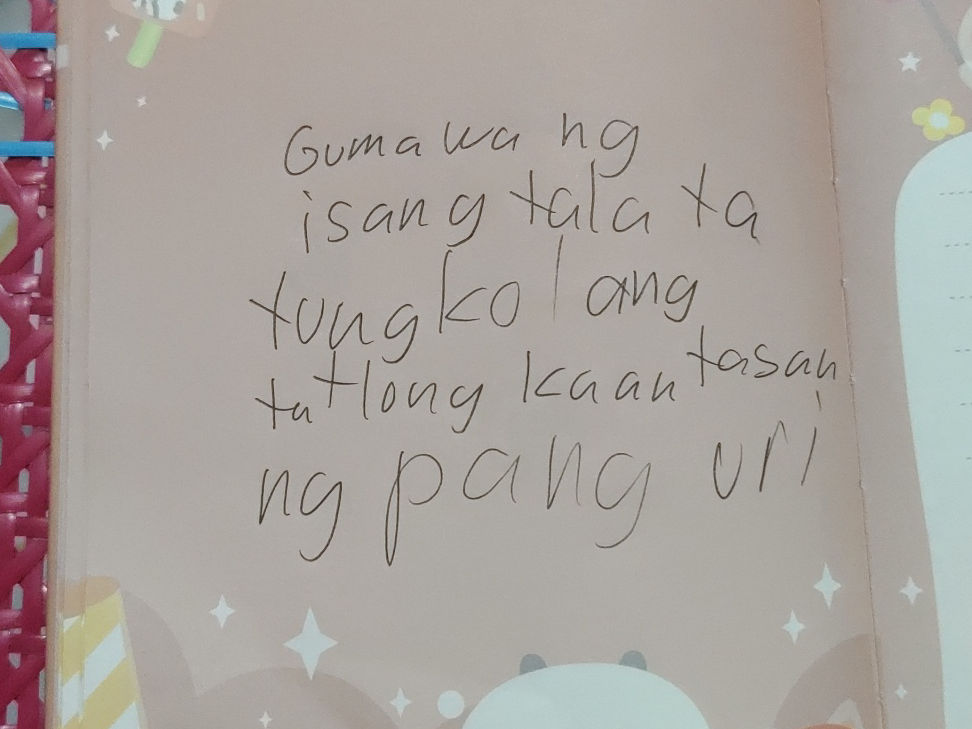 Gumawa ng
isang tala ta
tungkol ang
tatlong kaantasan
ng pang uri